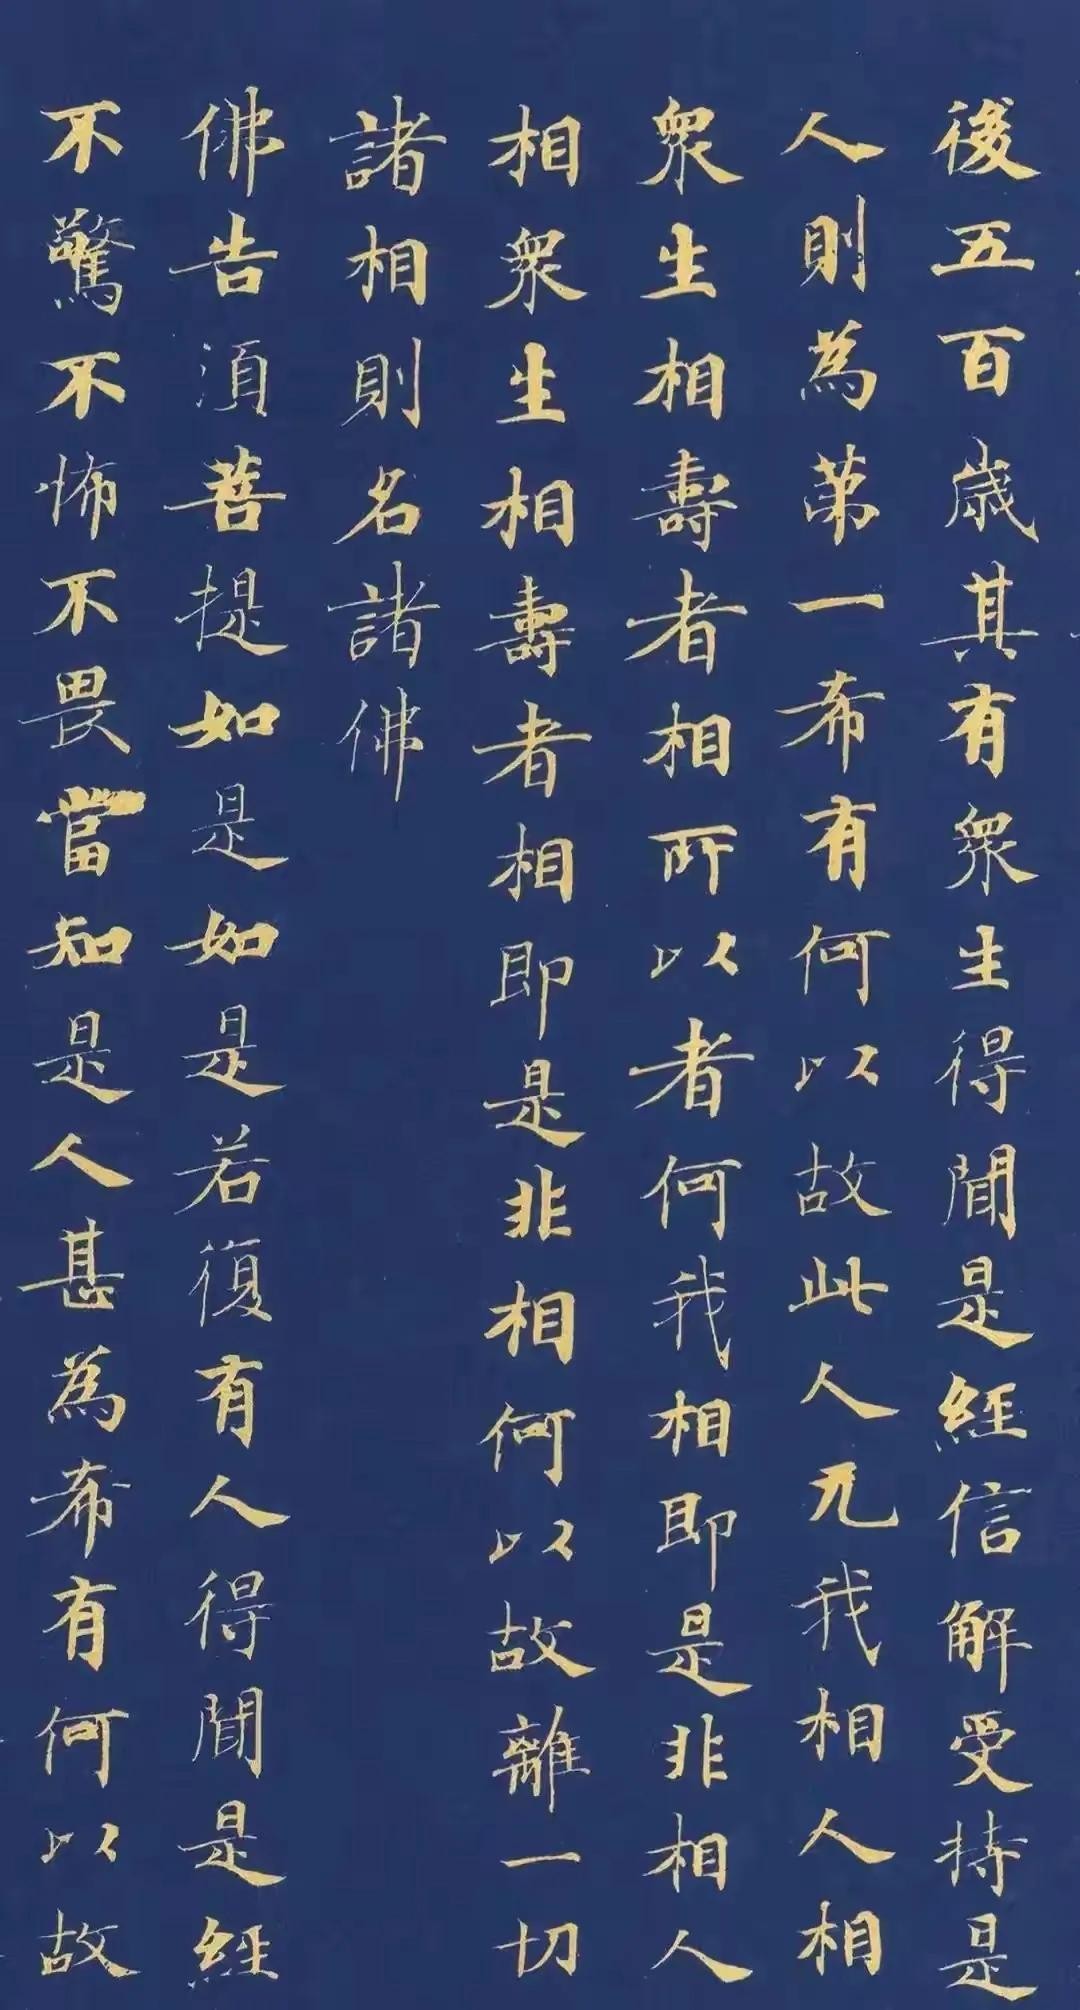 後五百歲其有衆生得聞是經信解受持是
人則為苐一希有何以故此人无我相人相
衆生相壽者相所以者何我相即是非相人
相衆生相壽者相即是非相何以故離一切
諸相則名諸佛
佛告須菩提如是如是若復有人得聞是經
不驚不怖不畏當知是人甚為希有何以故